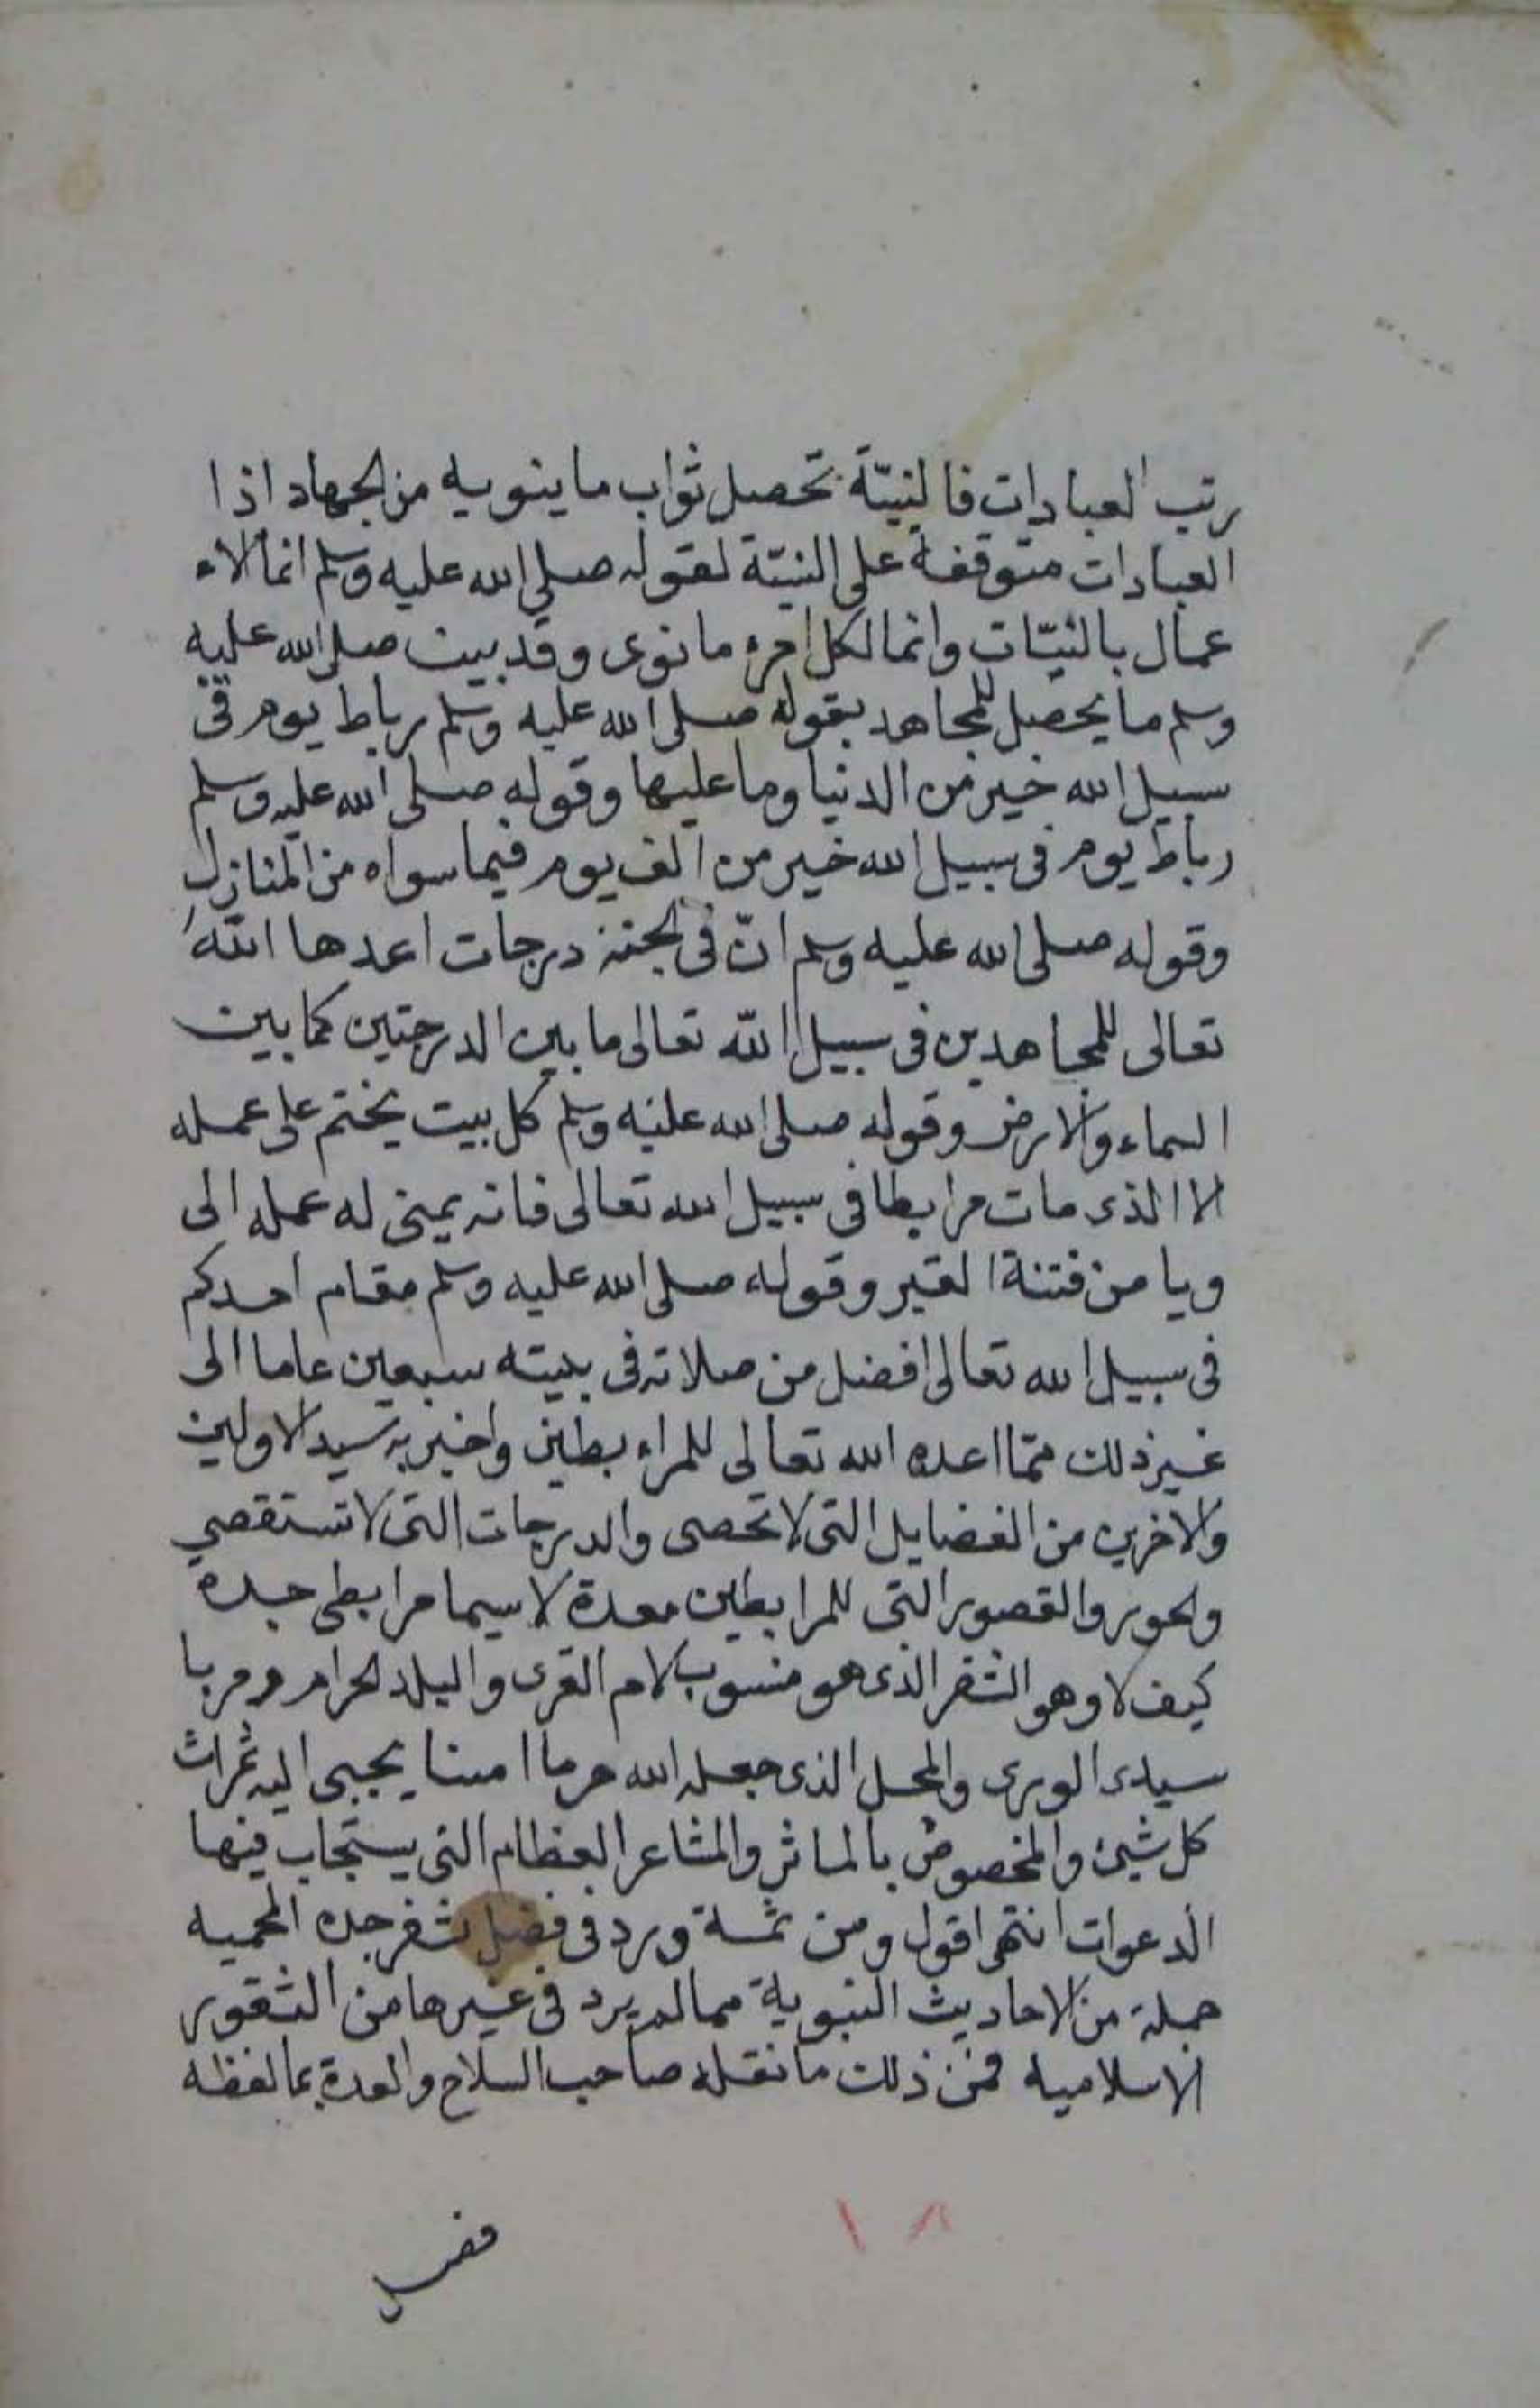 رتب العبادات فالنيّة تحصل ثواب ما ينويه من الجهاد اذا
العبادات متوقفة على النيّة لقوله صلى الله عليه وسلم انما الاء
عمال بالنيّات وانما لكل امرء ما نوى وقد بين صلى الله عليه
وسلم ما يحصل للمجاهد بقوله صلى الله عليه وسلم رباط يوم في
سبيل الله خير من الدنيا وما عليها وقوله صلى الله عليه وسلم
رباط يوم في سبيل الله خير من الف يوم فيما سواه من المنازل
وقوله صلى الله عليه وسلم انّ في الجنة درجات اعدها الله
تعالى للمجاهدين في سبيل الله تعالى ما بين الدرجتين كما بين
السماء والارض وقوله صلى الله عليه وسلم كل بيت يختم على عمله
الا الذي مات مرابطا في سبيل الله تعالى فانه يمنى له عمله الى
ويامن فتنة القبر وقوله صلى الله عليه وسلم مقام احدكم
في سبيل الله تعالى افضل من صلاته في بيته سبعين عاما الى
غير ذلك ممّا اعده الله تعالى للمراءبطين واخبر به سيد الاولين
والاخرين من الفضايل التي لا تحصى والدرجات التي لا تستقصي
والحور والقصور التي للمرابطين معدة لا سيما مرابطي جده
كيف لا وهو الثغر الذي هو منسوب لام القرى والبلد الحرام ومربا
سيدى الورى والمحل الذي جعله الله حرما امنا يجبى اليه ثمرات
كل شيئ والمخصوص بالماثر والمشاعر العظام التي يستجاب فيها
الدعوات انتهى اقول ومن ثمة ورد في فضل ثغر جده المحميه
جملة من الاحاديث النبوية مما لم يرد في غيرها من الثغور
الاسلامية فمن ذلك ما نقله صاحب السلاح والعدة بما لفظه
١٨
فضل